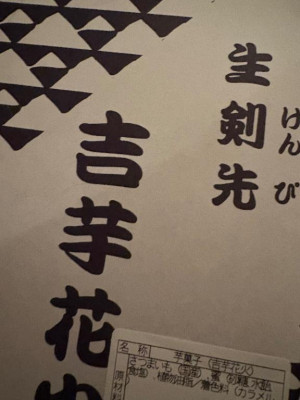 生剣先
けんぴ
吉芋花火
名称 芋菓子(吉芋花火)
さつまいも(国産)、
食塩、植物油脂/着色料(カラメル
原材料